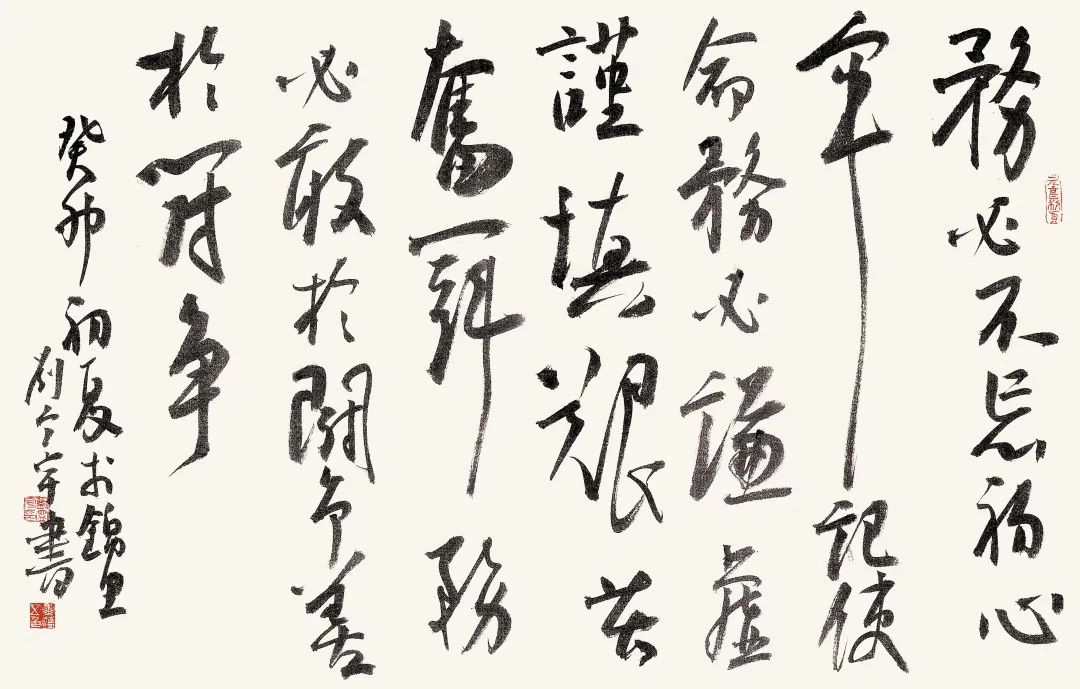 務必不忘初心
牢記使
命務必謙虛
謹慎艱苦
奮鬥務
必敢於鬥爭善
於鬥爭
癸卯初夏於錦里
書